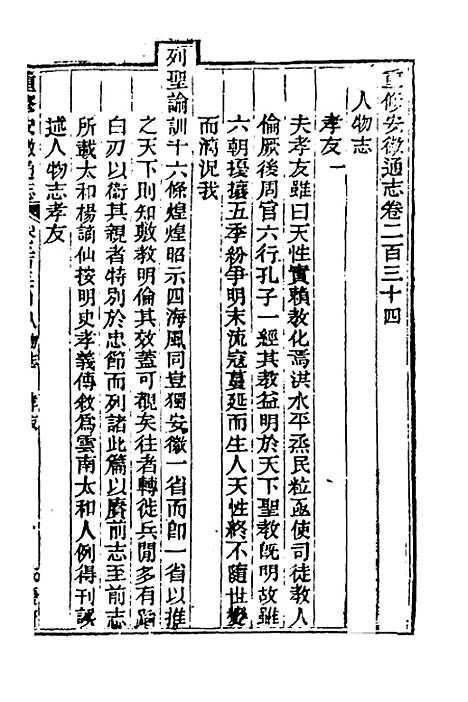 重修安徽通志卷二百三十四
人物志
孝友一
夫孝友雖曰天性實賴教化焉洪水平烝民粒亟使司徒教人
倫厥後周官六行孔子一經其教益明於天下聖教旣明故雖
六朝擾攘五季紛爭明末流寇蔓延而生人天性終不隨世變
而漓況我
列聖諭訓十六條煌煌昭示四海風同豈獨安徽一省而卽一省以推
之天下則知敷教明倫其效蓋可覩矣往者轉徙兵閒多有蹈
白刃以衞其親者特別於忠節而列諸此篇以賡前志至前志
所載太和楊謫仙按明史孝義傳敘爲雲南太和人例得刊誤
述人物志孝友
重修安徽通志 人物志 孝友